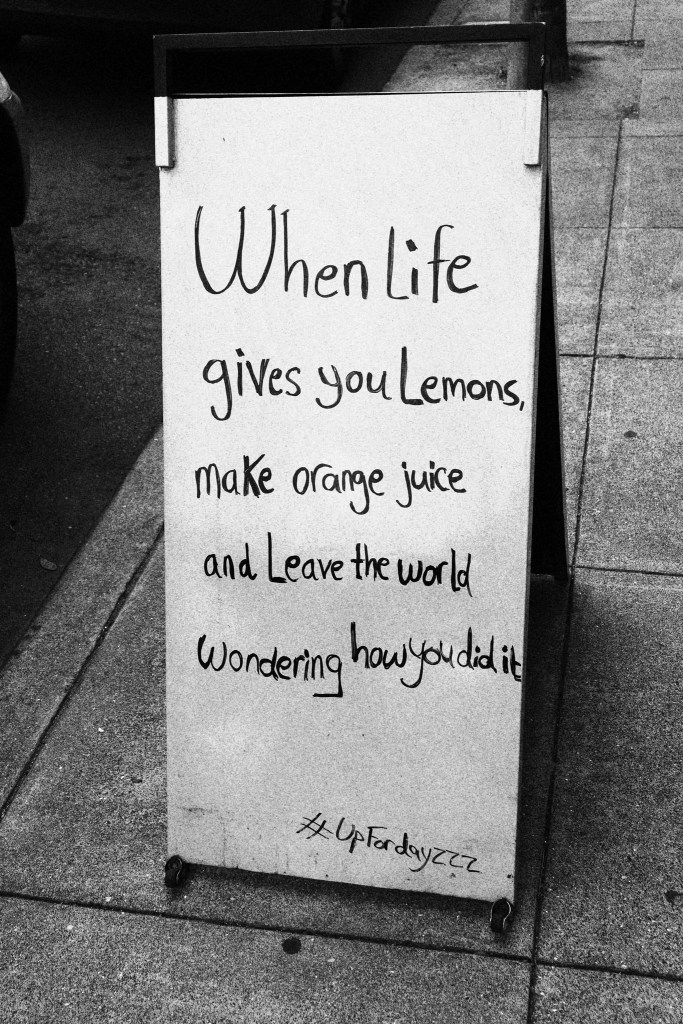 When Life
gives you Lemons,
make orange juice
and Leave the world
Wondering how you did it
#UpFordayzzz